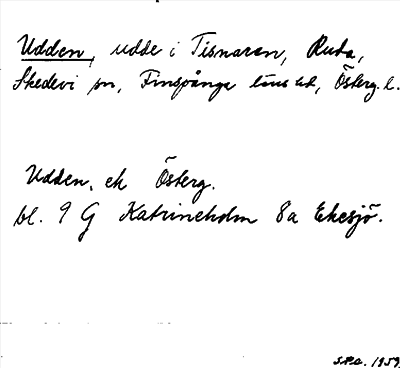 Udden, udde i Tisnaren, Ruda,
Skedevi sn, Finspånga läns hd, Österg. l.
Udden, ek Österg.
bl. 9 G Katrineholm 8a Ekesjö.
1959